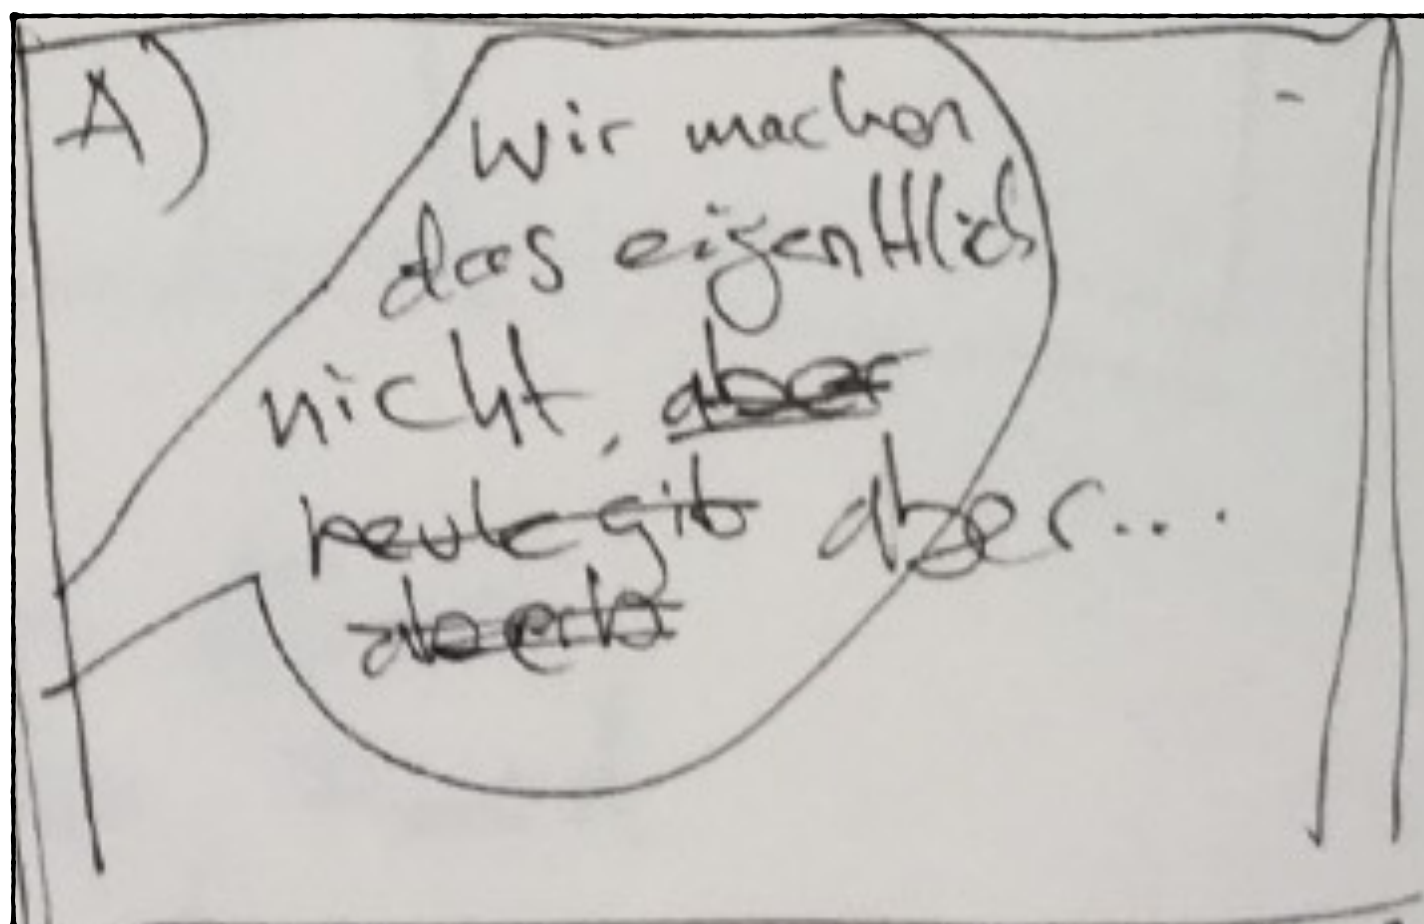 A)
Wir machen
das eigentlich
nicht, aber
heute gib aber...